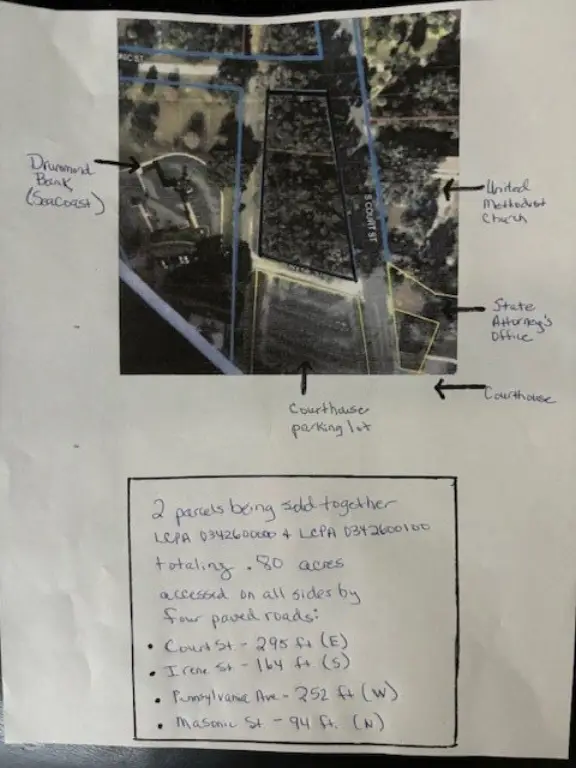 NIC ST
S COURT ST
Drummond
Bank
(SeaCoast)
United
Methodist
Church
State
Attorney's
Office
Courthouse
Courthouse
parking lot
2 parcels being sold together
LCPA 0342600000 & LCPA 0342600100
totaling .80 acres
accessed on all sides by
four paved roads:
• Court St - 295 ft (E)
• Irene St - 164 ft (S)
• Pennsylvania Ave - 252 ft (W)
• Masonic St - 94 ft. (N)